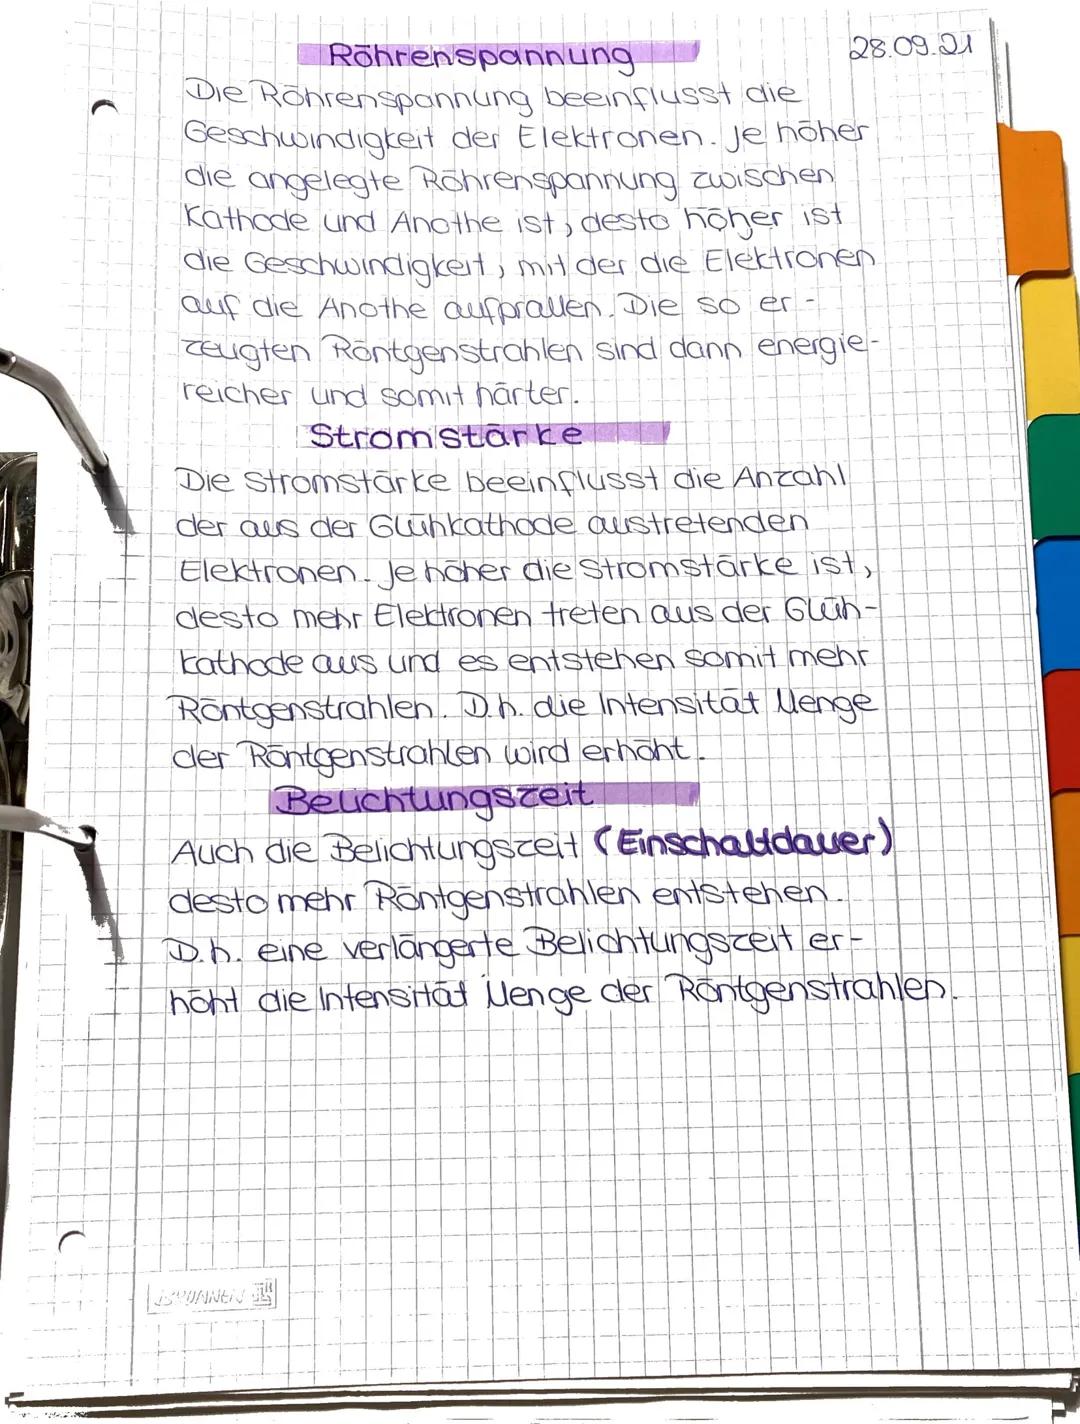 Röhrenspannung
28.09.21
Die Röhrenspannung beeinflusst die
Geschwindigkeit der Elektronen. Je höher
die angelegte Röhrenspannung zwischen
Kathode und Anothe ist, desto höher ist
die Geschwindigkeit, mit der die Elektronen
auf die Anothe aufprallen. Die so er-
zeugten Röntgenstrahlen sind dann energie-
reicher und somit härter.
Stromstärke
Die Stromstärke beeinflusst die Anzahl
der aus der Glühkathode austretenden
Elektronen. Je höher die Stromstärke ist,
desto mehr Elektronen treten aus der Glüh-
kathode aus und es entstehen somit mehr
Röntgenstrahlen. D.h. die Intensität Menge
der Röntgenstrahlen wird erhöht.
Belichtungszeit
Auch die Belichtungszeit (Einschaltdauer)
desto mehr Röntgenstrahlen entstehen.
D.h. eine verlängerte Belichtungszeit er-
höht die Intensität Menge der Röntgenstrahlen.
BRUNNEN